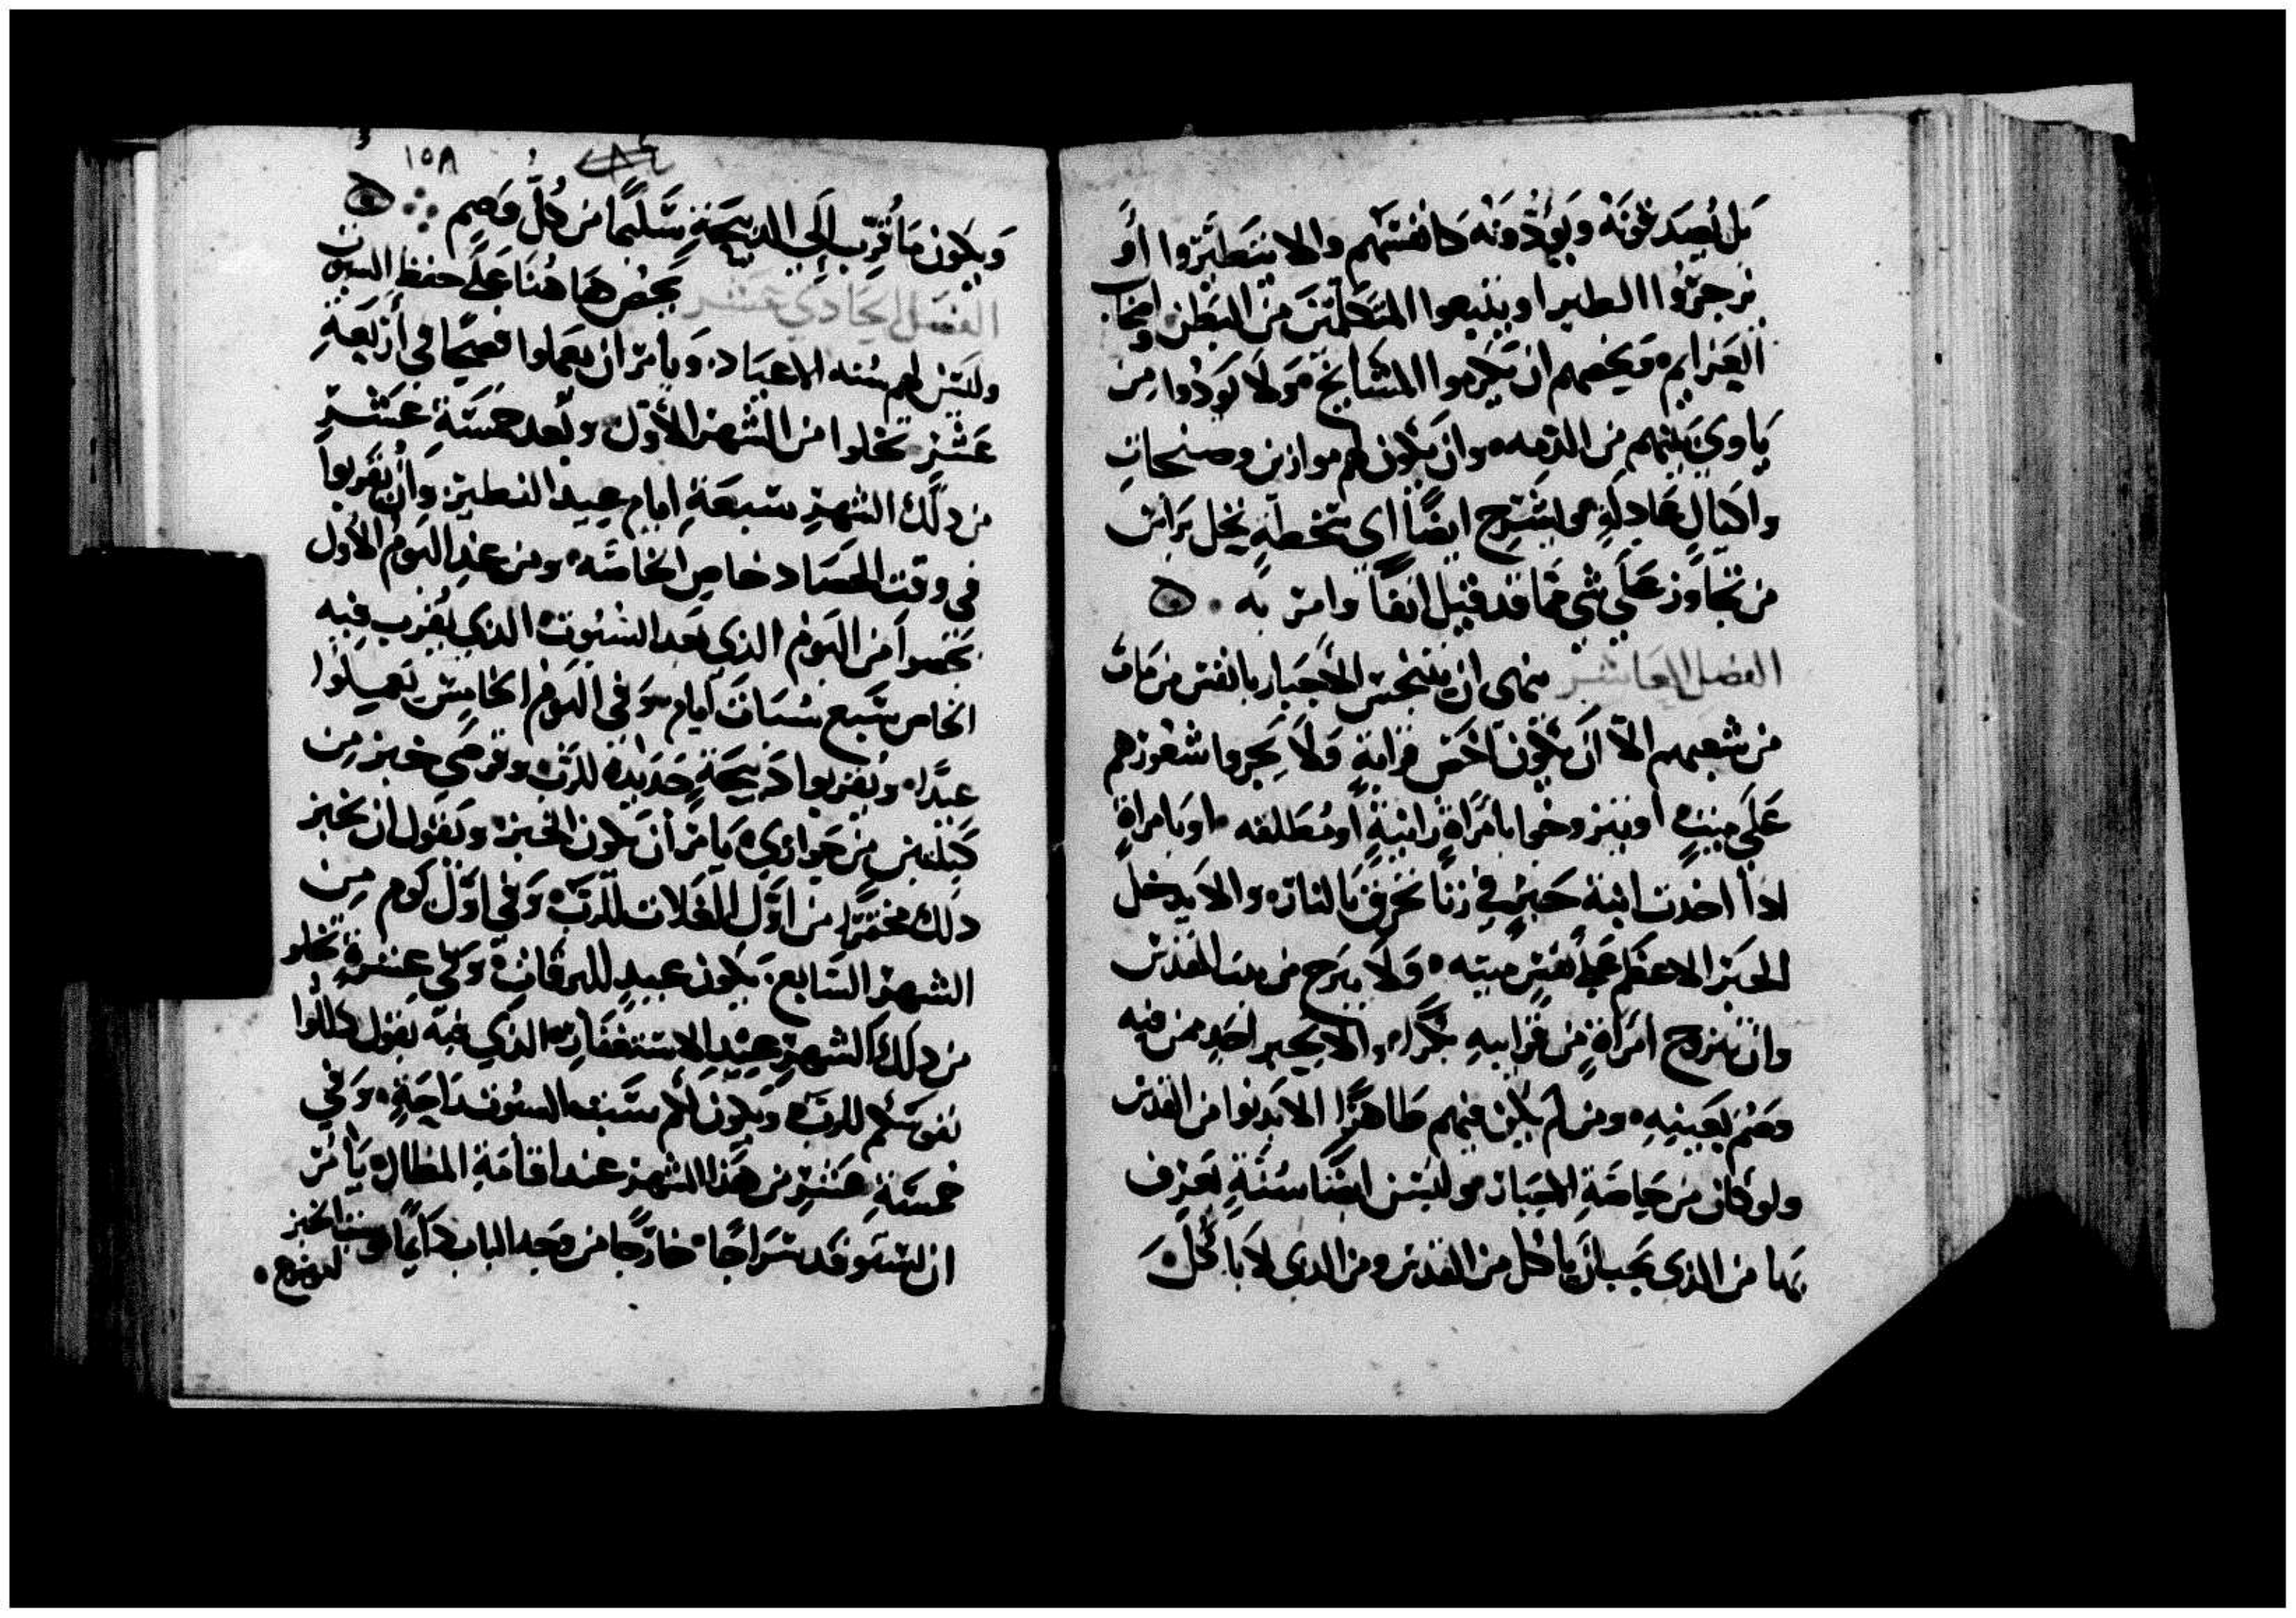 بل يُصدقونَهُ ويَودُّونَهُ كانفسهم والا يتطيَّروا أو
يزجرُوا الطير او يتبعوا المتكلمين من البطن واصحاب
العزايم ويخصهم ان يكرموا المشايخ ولا يوذوا من
ياوي بينهم من الدمه وان يكون لهم موازين وصنجات
واكيال عادلةٍ ويشرح ايضًا اي سخطه يحل براس
من تجاوز علي شي مما قد قيل انفًا وامر به
الفصل العاشر ينهي ان يتنجس الاحبار بانفس من مات
من شعبهم الا ان يكون اخص قرابةٍ ولا يجزوا شعورهم
علي ميتٍ او يتزوجوا بامراةٍ زانيةٍ او مُطلقه او بامراةٍ
اذا اخدت ابنة حبرٍ في زنًا تحرق بالنار والا يدخل
الحبر الاعظم علي نفسٍ ميته ولا يبرح من بيت القدس
وان يتزوج امراةٍ من قرايبه بكرًا والا يجير احدٍ ممن فيه
وصم بعينيه ومن لم يكن منهم طاهرًا الا يدنوا من القدس
ولو كان من خاصة الاحبار ويسن ايضًا سُنةٍ تعرف
بها من الذي يجب ان ياكل من القدس ومن الدي لا ياكل
١٥٨
ويكون ما قُرِّب الي الدبيحة سَليمًا من كل وصم
الفصل الحادي عشر يحض هاهنا علي حفظ السبوت
وليسن لهم سُنه الاعياد ويامر ان يعملوا فصحًا في أربعةِ
عشر تخلوا من الشهر الأول وبعد خمسة عشر
من دلك الشهر سبعة ايام عيد الفطير وأن يُقربوا
في وقت الحصاد خاص الخاصه ومن غد اليوم الأول
يحصوا من اليوم الذي بعد السبوت الذي يُقرب فيه
الخاص سبع سُباتَ ايام وفي اليوم الخامس يعملوا
عيدًا ويُقربوا ذبيحةٍ جديدة للرب وقرصي خبز من
كيلتين من حواري يامر ان يكون الخبز ويقول ان يخبز
دلك مختمرًا من اوَّل الغلات للرَّب وفي اوَّل يوم من
الشهر السابع يكون عيد للبوقات وفي عشرةٍ تخلو
من دلك الشهر عيد الاستغفار الذي فيه يقول دللوا
نفوسكم للرب ويكون لكم سبت السبوت راحةٍ وفي
خمسة عشر من هذا الشهر عند اقامة المظال يأمر
ان يستوقد سراجًا خارجًا من وجد الباب دايمًا وسنن الخبز